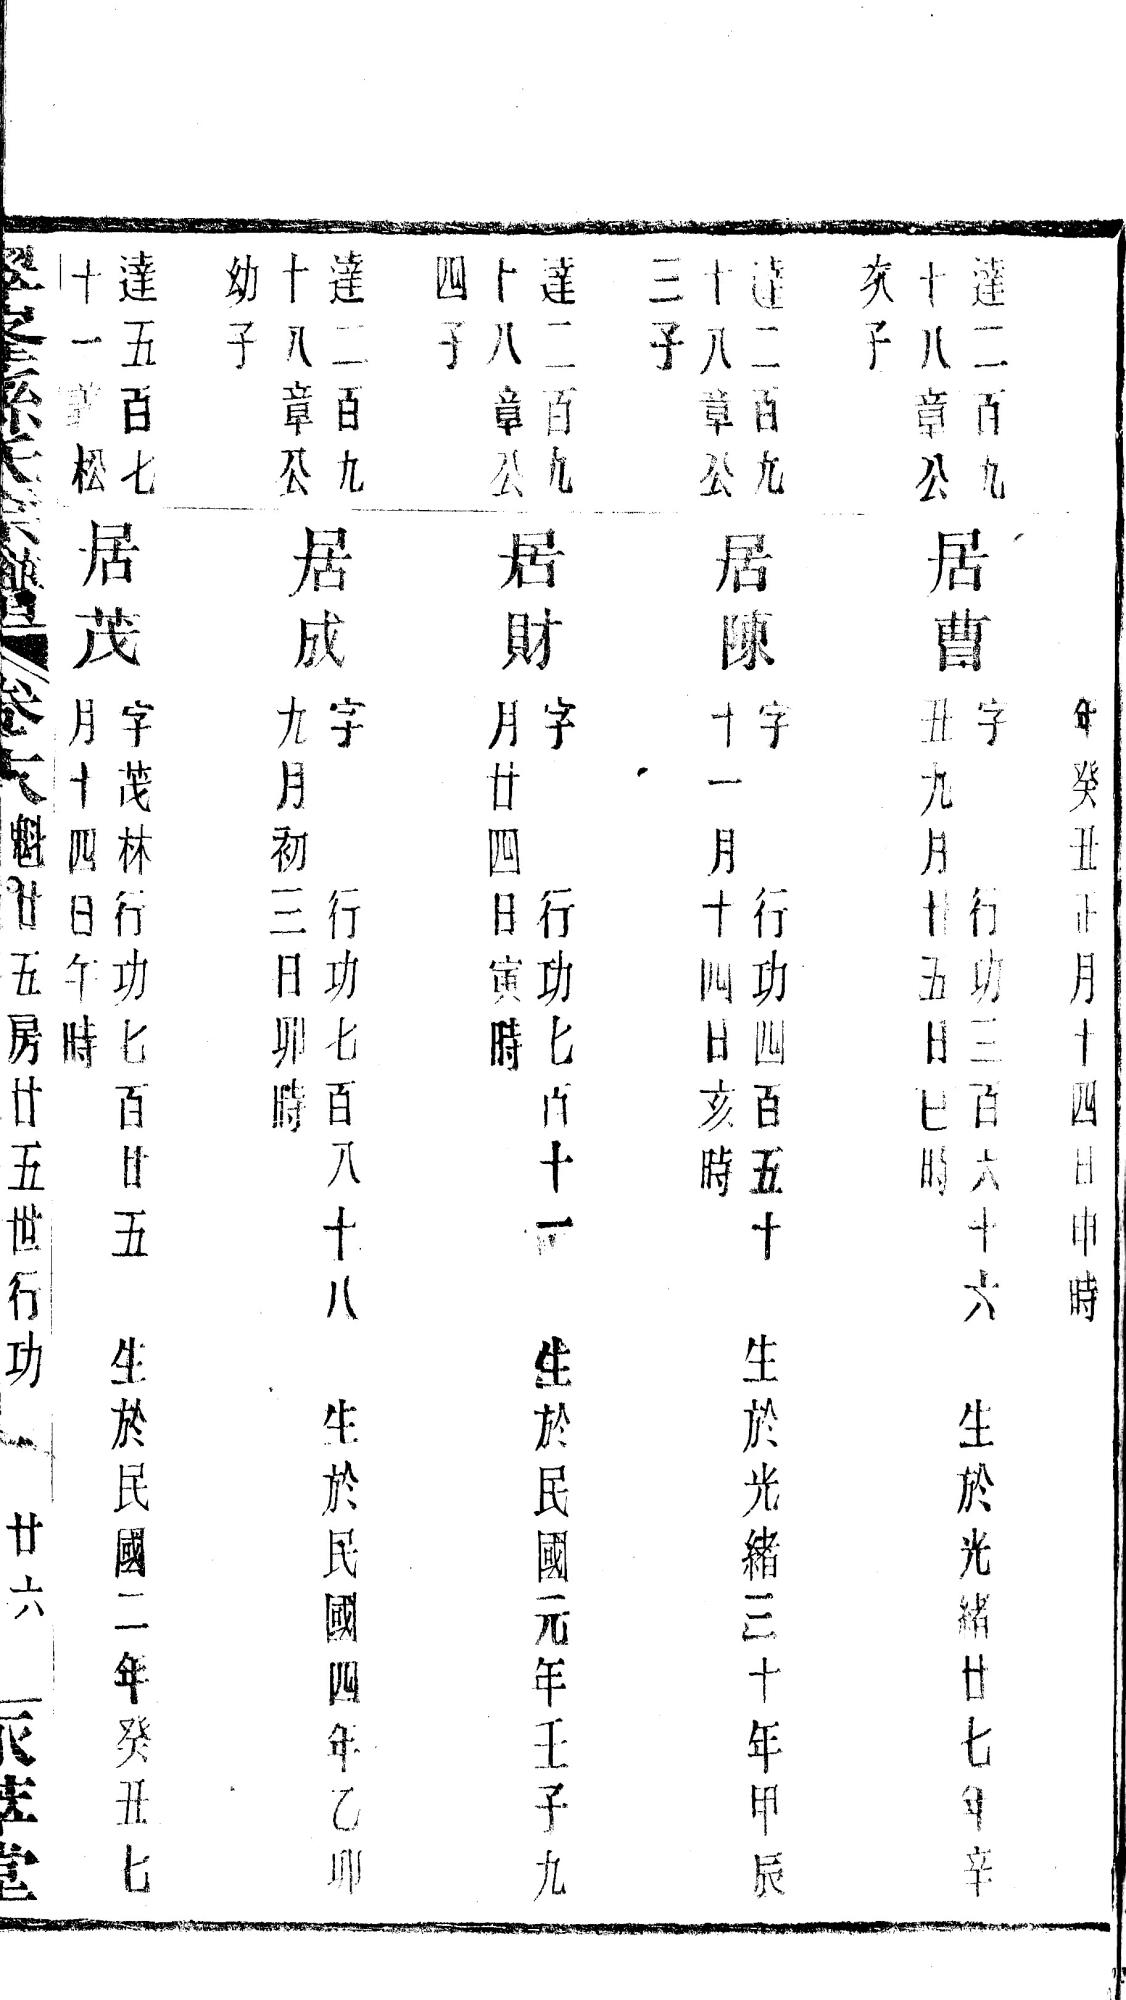 年癸丑正月十四日申時
達二百九
十八章公
次子
居曹
字 行功三百六十六 生於光緒廿七年辛
丑九月廿五日巳時
達二百九
十八章公
三子
居陳
字 行功四百五十 生於光緒三十年甲辰
十一月十四日亥時
達二百九
十八章公
四子
居財
字 行功七百十一 生於民國元年壬子九
月廿四日寅時
達二百九
十八章公
幼子
居成
字 行功七百八十八 生於民國四年乙卯
九月初三日卯時
達五百七
十一 松
居茂
字茂林行功七百廿五 生於民國二年癸丑七
月十四日午時
孫氏宗譜 卷六 魁廿五房廿五世行功 廿六 堂